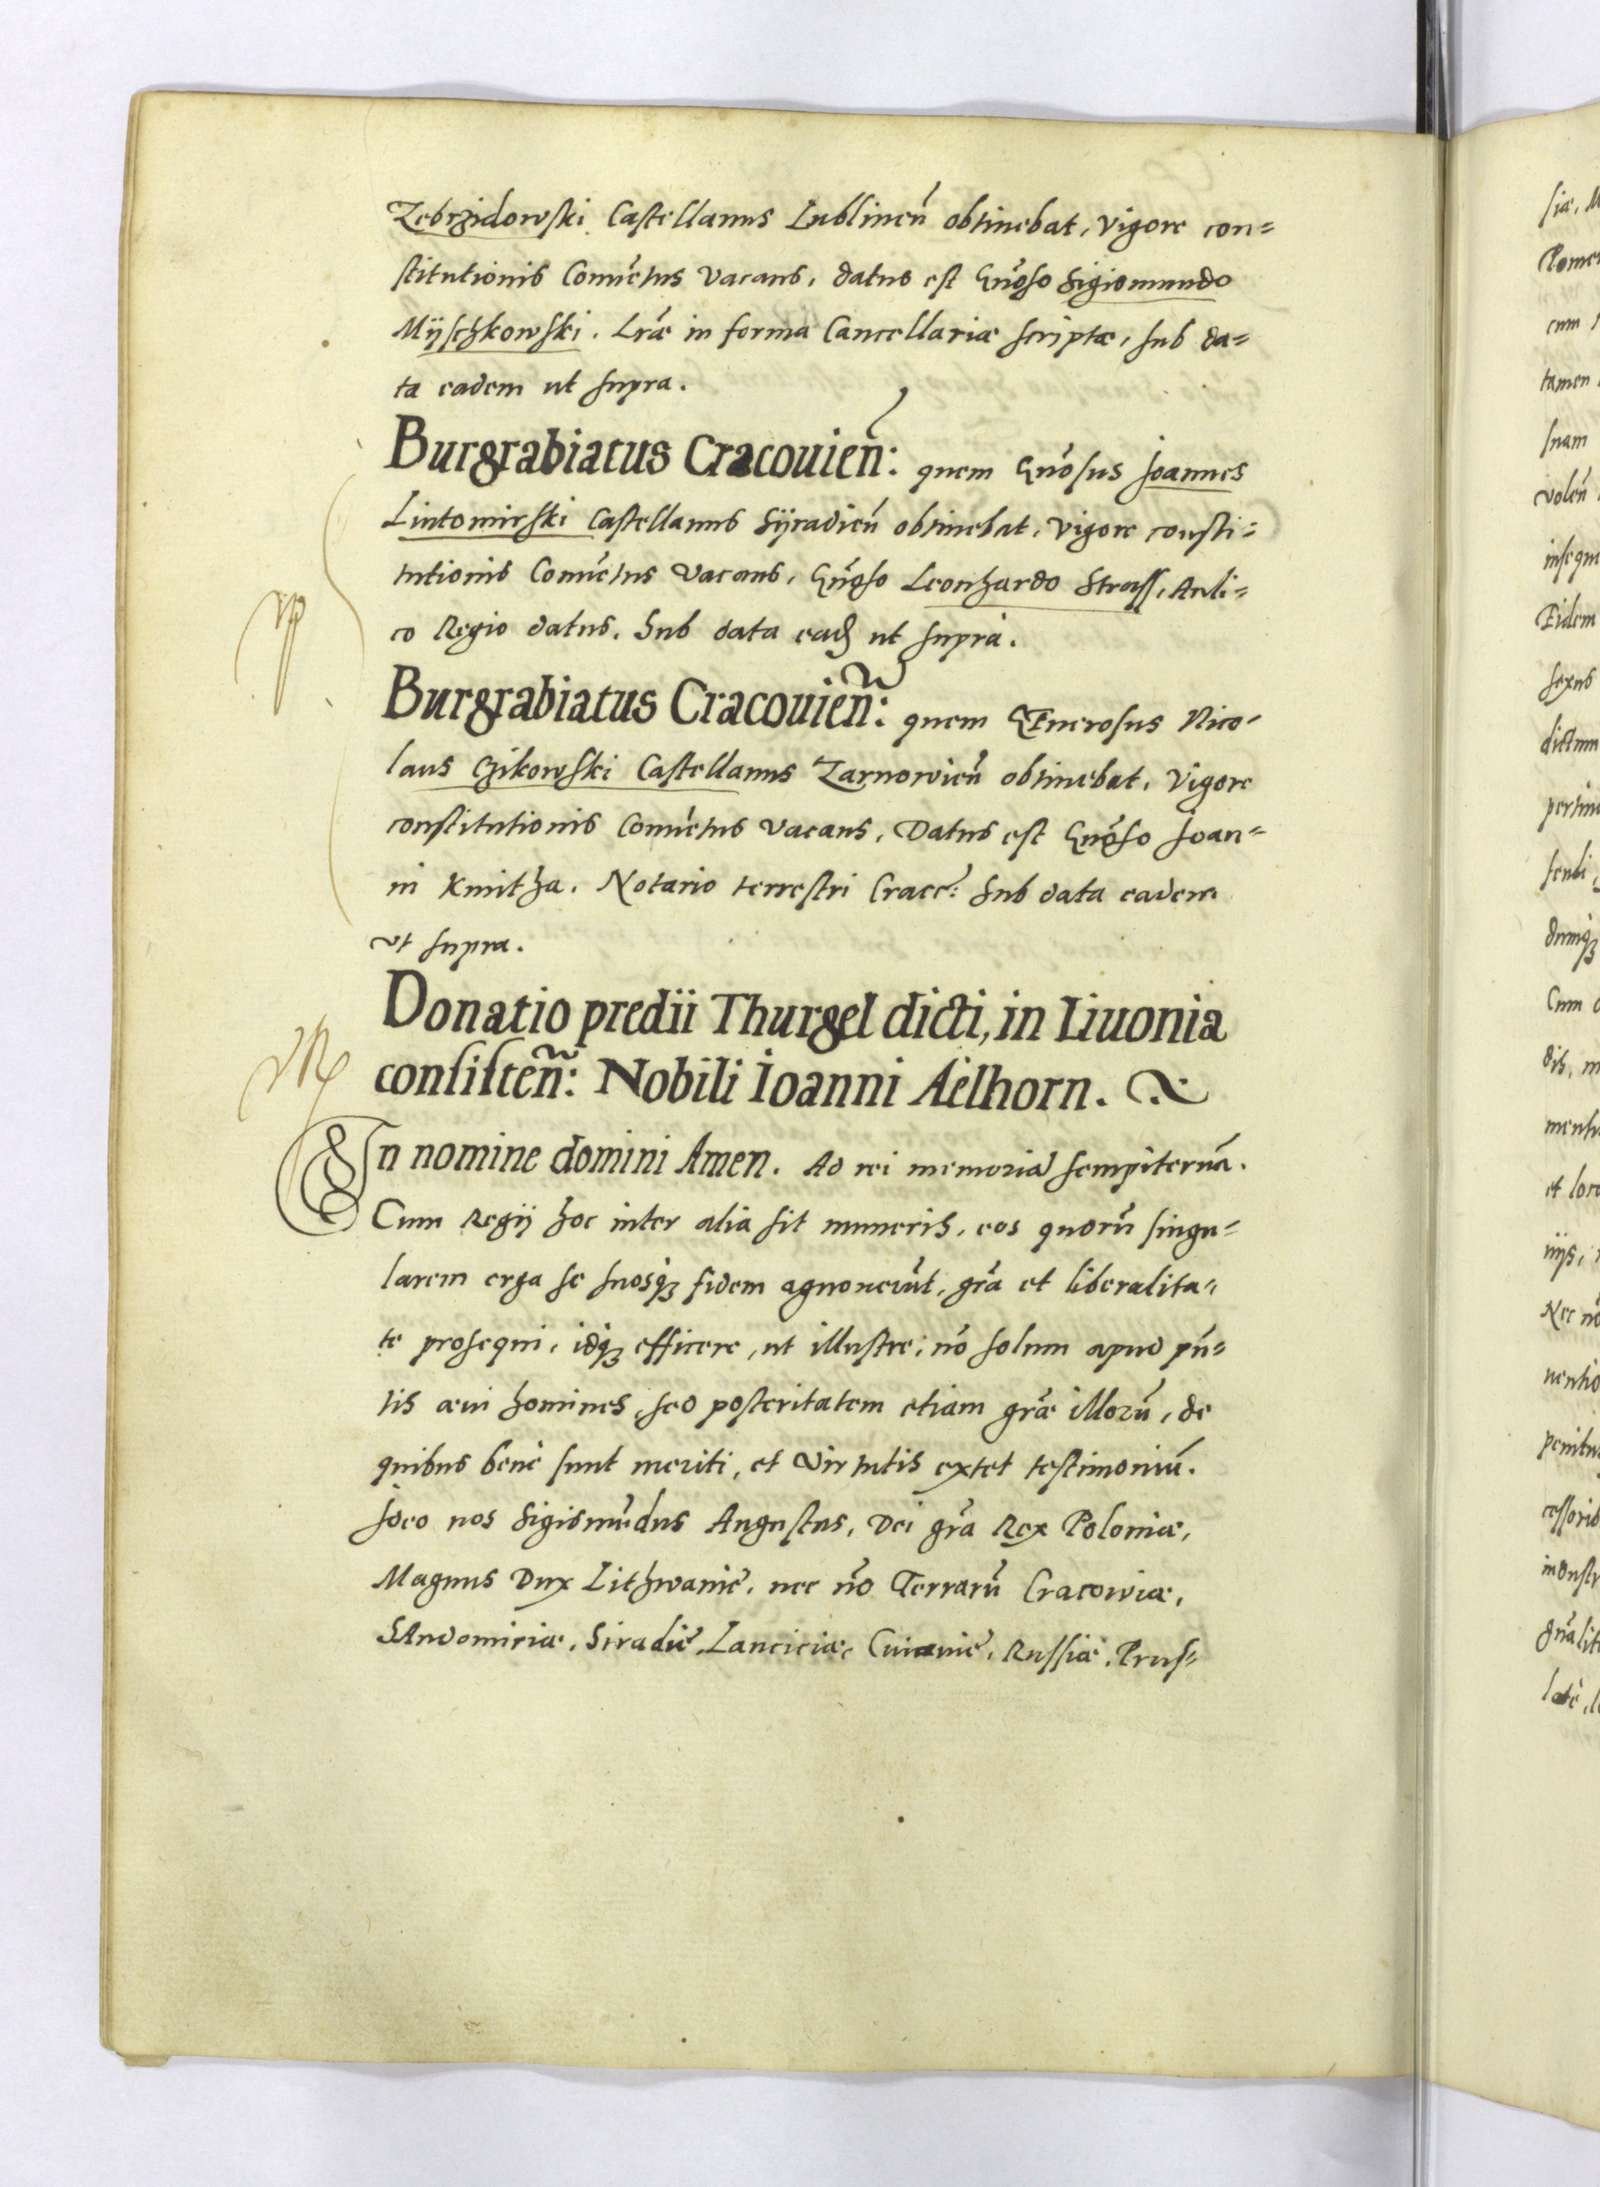 Zebrzidowski Castellanus Lublineñ obtinebat, vigore con=
stitutionis Comũetus vacans, datus est Gñoso Sigismundo
Mÿschkowski. Lrãe in forma Cancellariæ scriptæ, sub da=
ta eadem ut supra.
Burgrabiatus Cracouieñ: quem Gñosus Joannes
Lutomirski Castellanus Sÿradieñ obtinebat, vigore consti=
tutionis Comũetus vacans, Gñoso Leonhardo Strass, Auli=
co Regio datus. Sub data ead ut supra.
Burgrabiatus Cracouieñ: quem GEnerosus Nico=
laus Czikowski Castellanus Zarnowieñ obtinebat, vigore
constitutionis Comũetus vacans, Datus est Gñoso Joan=
ni Kmitha. Notario terrestri Cracẽ: Sub data eadem
ut supra.
Donatio predii Thurgel dicti, in Liuonia
consisteñ: Nobili Ioanni Aëlhorn.
In nomine domini Amen. Ad rei memoriã sempiternã.
Cum Regij hoc inter alia sit muneris, eos quorũ singu=
larem erga se suosq; fidem agnouerũt, grã et liberalita=
te prosequi, idq; efficere, ut illustre, nõ solum apud pñ=
tis æui homines, sed posteritatem etiam grãe illorũ, de
quibus benè sunt meriti, et virtutis extet testimoniũ.
Ideo nos Sigismũdus Augustus, Dei grã Rex Poloniæ,
Magnus Dux Lithwanie, nec nõ Terrarũ Cracowiæ,
SAndomiriæ, Siradie, Lanciciæ, Cuiauie, Russiæ, Prus=